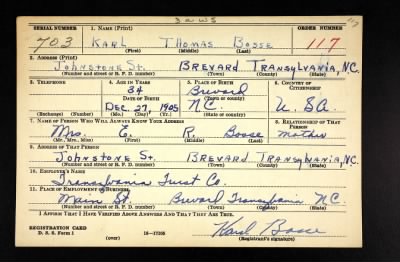 SERIAL NUMBER 1. NAME (Print) ORDER NUMBER
703 KARL THOMAS BOSSE 117
(First) (Middle) (Last)
2. ADDRESS (Print)
JOHNSTONE ST. BREVARD TRANSYLVANIA, N.C.
(Number and street or R. F. D. number) (Town) (County) (State)
3. TELEPHONE 4. AGE IN YEARS 5. PLACE OF BIRTH 6. COUNTRY OF CITIZENSHIP
34 Brevard
DATE OF BIRTH (Town or county)
DEC. 27, 1905 N.C. U.S.A.
(Exchange) (Number) (Mo.) (Day) (Yr.) (State or country)
7. NAME OF PERSON WHO WILL ALWAYS KNOW YOUR ADDRESS 8. RELATIONSHIP OF THAT PERSON
Mrs. E. R. Bosse mother
(Mr., Mrs., Miss) (First) (Middle) (Last)
9. ADDRESS OF THAT PERSON
JOHNSTONE ST. BREVARD TRANSYLVANIA, N.C.
(Number and street or R. F. D. number) (Town) (County) (State)
10. EMPLOYER'S NAME
Transylvania Trust Co.
11. PLACE OF EMPLOYMENT OR BUSINESS
Main St. Brevard Transylvania N.C.
(Number and street or R. F. D. number) (Town) (County) (State)
I AFFIRM THAT I HAVE VERIFIED ABOVE ANSWERS AND THAT THEY ARE TRUE.
REGISTRATION CARD
D. S. S. Form 1 (over) 16-17105 Karl Bosse
(Registrant's signature)